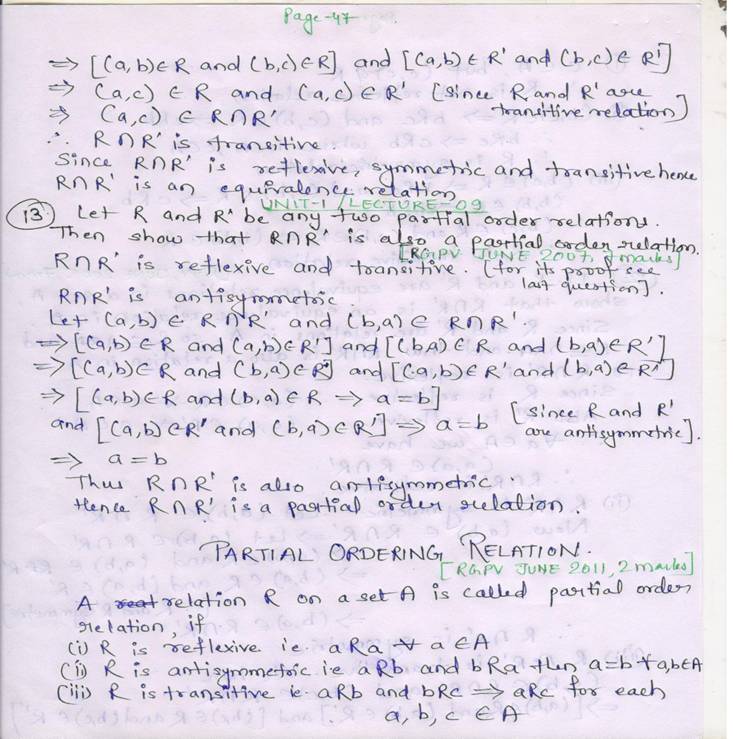 Page-47
⇒ [(a,b)∈R and (b,c)∈R] and [(a,b)∈R' and (b,c)∈R']
⇒ (a,c) ∈ R and (a,c)∈R' [since R and R' are
transitive relation]
⇒ (a,c) ∈ R∩R'
∴ R∩R' is transitive.
Since R∩R' is reflexive, symmetric and transitive hence
R∩R' is an equivalence relation
UNIT-1/LECTURE-09
(13) Let R and R' be any two partial order relations.
Then show that R∩R' is also a partial order relation.
[RGPV JUNE 2007, 7 marks]
R∩R' is reflexive and transitive. [for its proof see
last question].
R∩R' is antisymmetric
Let (a,b)∈ R∩R' and (b,a)∈ R∩R'
⇒ [(a,b)∈R and (a,b)∈R'] and [(b,a)∈R and (b,a)∈R']
⇒ [(a,b)∈R and (b,a)∈R] and [(a,b)∈R' and (b,a)∈R']
⇒ [(a,b)∈R and (b,a)∈R ⇒ a=b]
and [(a,b)∈R' and (b,a)∈R'] ⇒ a=b [since R and R'
are antisymmetric].
⇒ a=b
Thus R∩R' is also antisymmetric.
Hence R∩R' is a partial order relation.
PARTIAL ORDERING RELATION.
[RGPV JUNE 2011, 2 marks]
A relation R on a set A is called partial order
relation, if
(i) R is reflexive i.e. aRa ∀ a∈A
(ii) R is antisymmetric i.e aRb and bRa then a=b ∀ a,b∈A
(iii) R is transitive ie aRb and bRc ⇒ aRc for each
a, b, c ∈ A